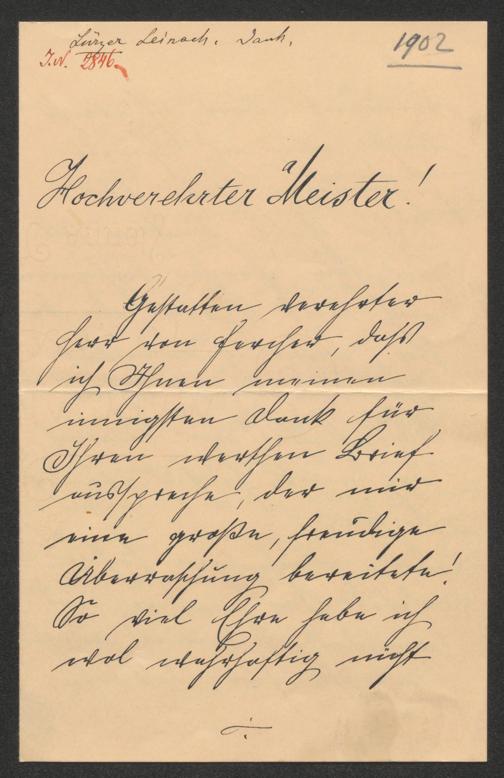 Lürzer Leinach. Dank.
1902
J.N. 2846.
Hochverehrter Meister!
Gestatten verehrter
Herr von Fercher, daß
ich Ihnen meinen
innigsten Dank für
Ihren werthen Brief
ausspreche, der mir
eine große, freudige
Überraschung bereitete!
So viel Ehre habe ich
wol wahrhaftig nicht